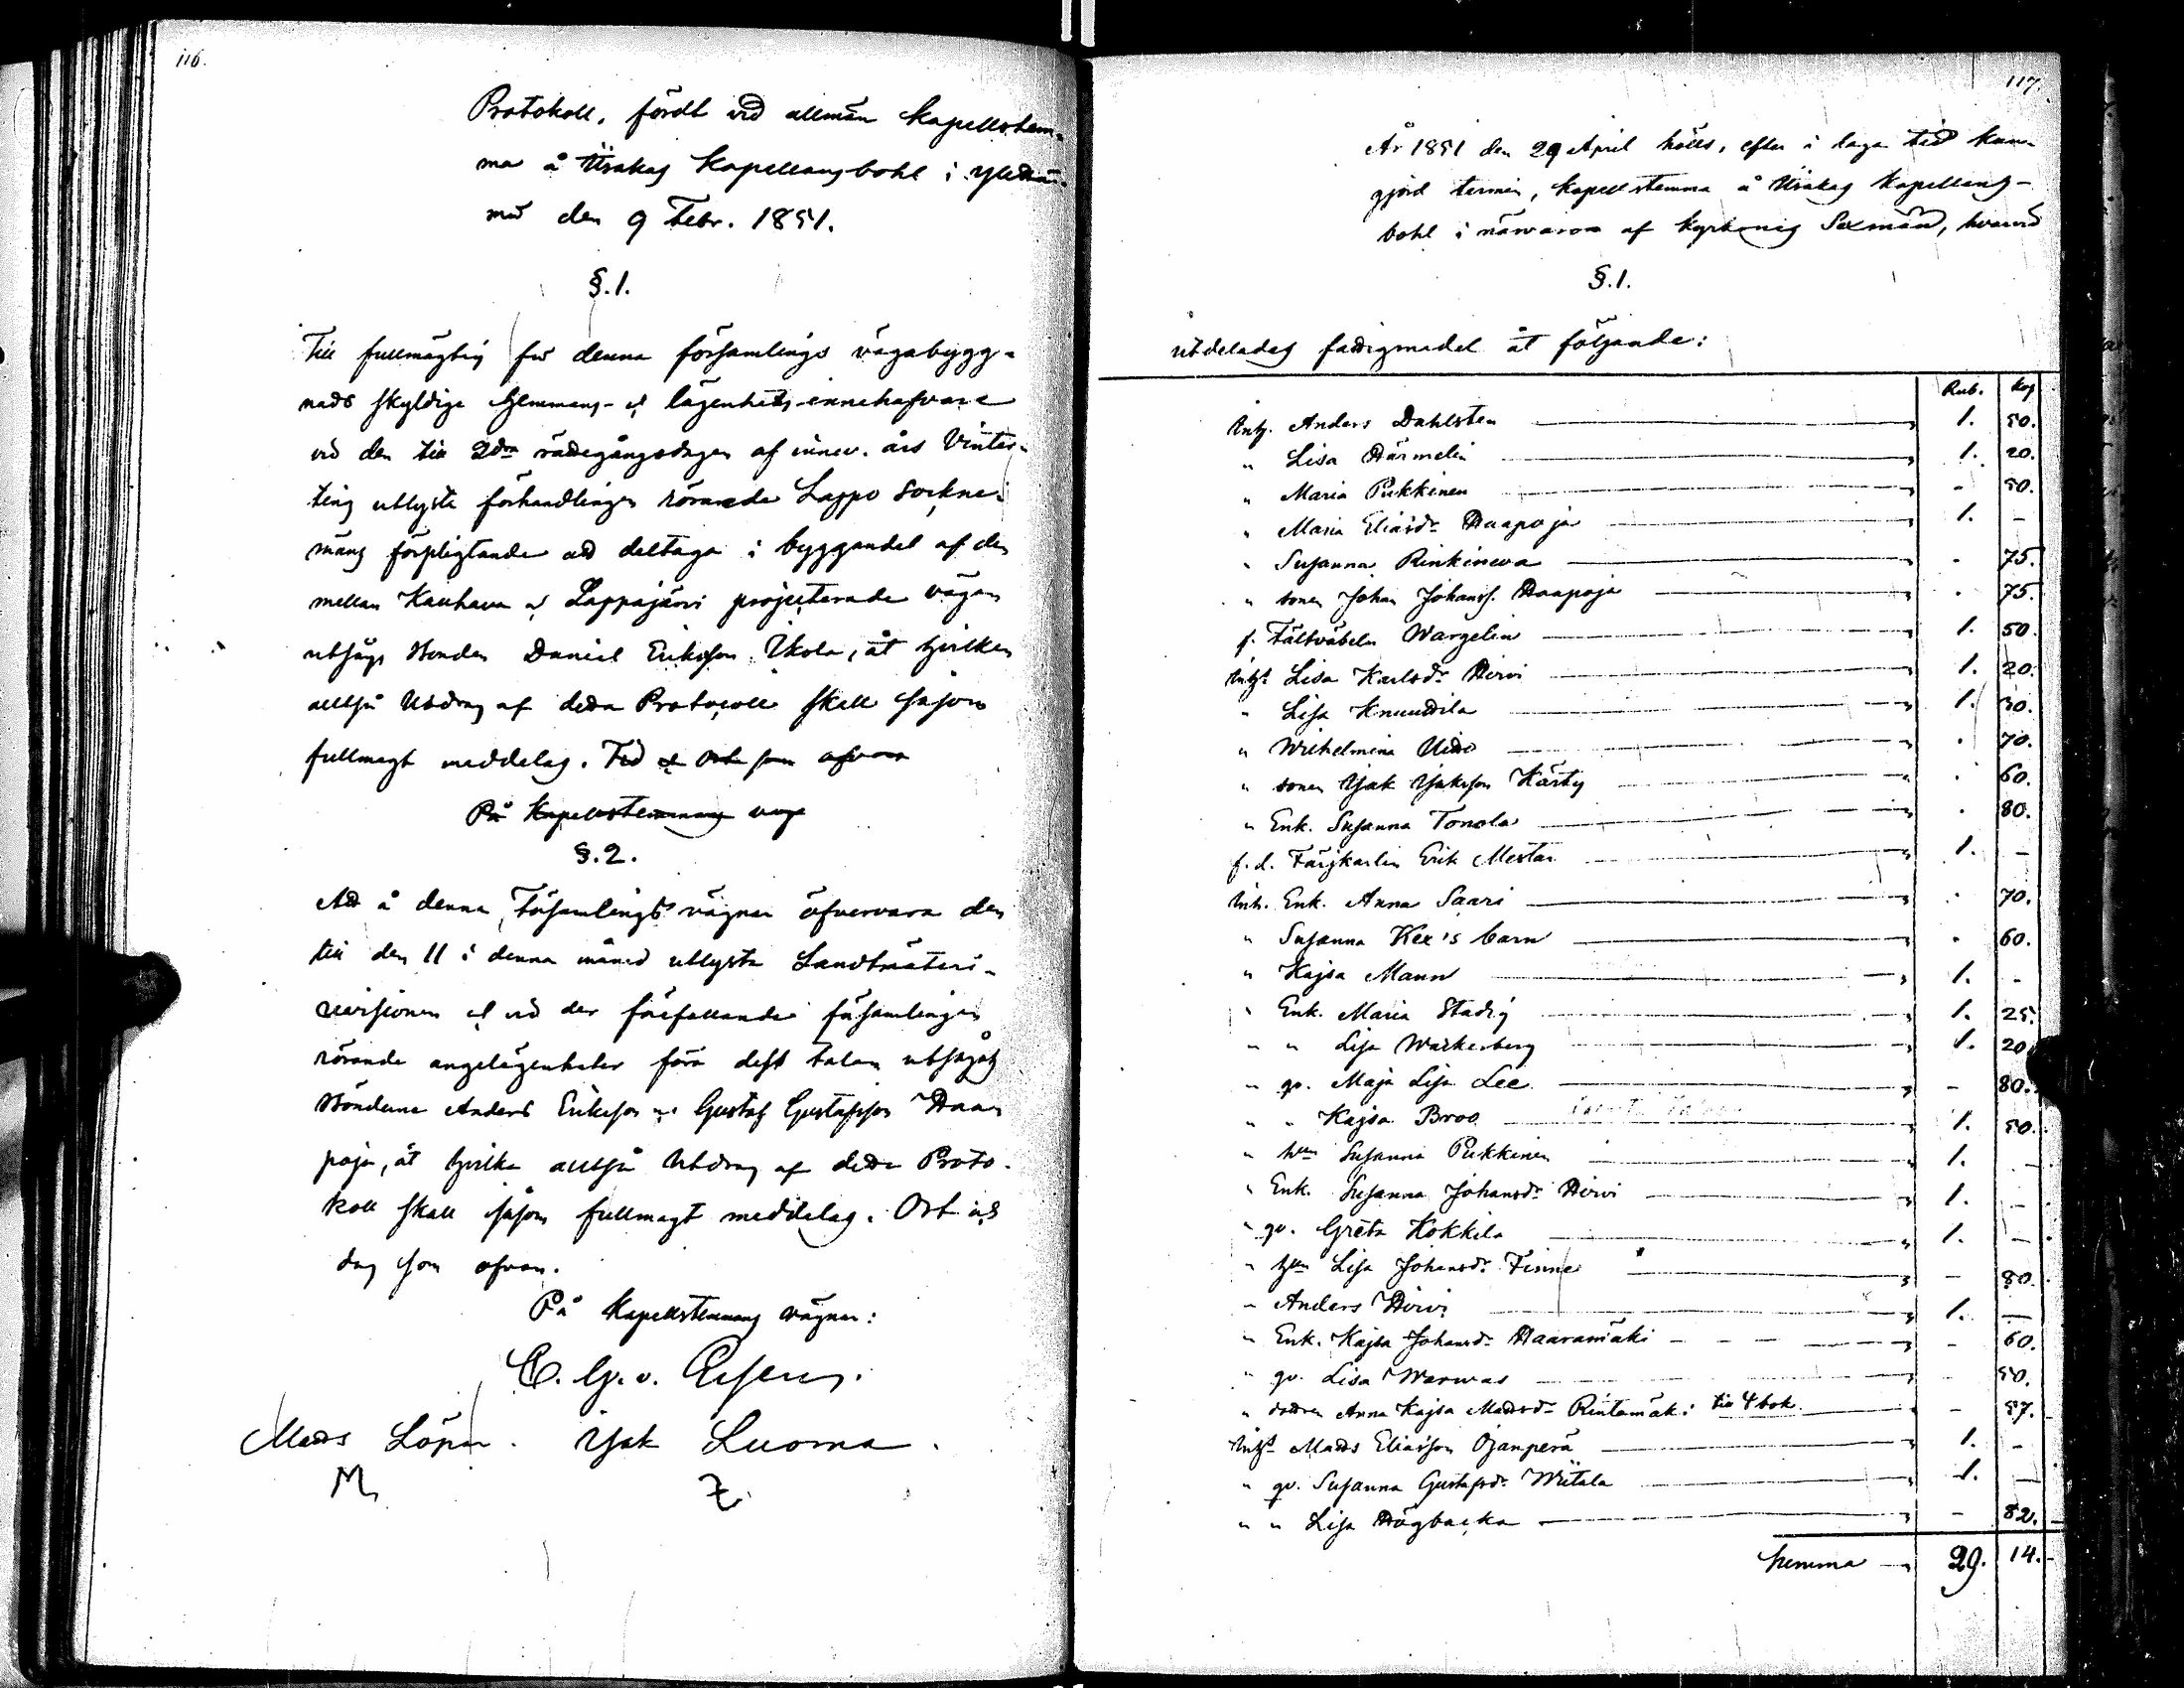 116.
Protokoll, fördt vid allmän Kapellstem-
ma å Kapellansbohl i Ylihär-
mä den 9 Febr. 1851.
§.1.
Till fullmägtig för denna församlings vägabygg-
nads skyldige Hemmans- och lägenhets-innehafvare
vid den till 2dra rättegångsdagen af innev. års Vinter-
ting utlyste förhandlingen rörande Lappo Sockne-
mäns förpligtande att deltaga i byggandet af den
mellan Kauhava och Lappajärvi projecterade vägen
utsågs Bonden Daniel Eriksson Ikola, åt hvilken
alltså Utdrag af detta Protocoll skall såsom
fullmagt meddelas. Tid och Ort som ofvan
På Kapellstemmans väg
§.2.
Att å denna Församlings vägnar öfvervara den
till den 11 i denna månad utlysta Landtmäteri-
revisionen och vid der förefallande församlingen
rörande angelägenheter föra dess talan utsågos
Bönderne Anders Eriksson och Gustaf Gustafsson Haa-
poja, åt hvilka alltså Utdrag af detta Proto-
koll skall såsom fullmagt meddelas. Ort och
dag som ofvan.
På Kapellstemmans vägnar:
C. G. v. Essen.
Matts Löpa. Isak Luoma.
M Z
117.
År 1851 den 29 April hölls, efter i laga tid kun-
gjord termin, Kapellstemma å Kapellans-
bohl i närvaro af Kyrkones Sexmän, hvarvid
§.1.
utdelades fattigmedel åt följande:
Rub. Kop
Inh. Anders Dahlsten 1. 50.
" Lisa Härmelin 1. 20.
" Maria Pukkinen - 50.
" Maria Eliasdr Haapoja 1. -
" Susanna Rinkineva - 75.
" sonen Johan Johanss. Haapoja - 75.
f. Fältväbeln Wargelin 1. 50.
Inhs Lisa Karlsdr Hirvi 1. 20.
" Lisa Knuuttila 1. 30.
" Wilhelmina - 70.
" sonen Isak Isaksson Kärty - 60.
" Enk. Susanna Tonola - 80.
f.d. Färjkarlen Erik Mestar 1. -
Inh. Enk. Anna Saari - 70.
" Susanna Kex's barn - 60.
" Kajsa Mann 1. -
" Enk. Maria Stadig 1. 25.
" " Lisa Warkenberg 1. 20
" qv. Maja Lisa Lee - 80.
" " Kajsa Broo 1. 50.
" hun Susanna Pukkinen 1. -
" Enk. Susanna Johansdr Hirvi 1. -
" qv. Greta Kokkila 1. -
" hun Lisa Johansdr Finne - 80.
" Anders Hirvi 1. -
" Enk. Kajsa Johansdr Haaramäki - 60.
" qv. Lisa Warwas - 50.
" dottren Anna Kajsa Mattsdr Rintamäki till 4 bok - 57.
Inhs Matts Eliasson Ojanperä 1. -
" qv. Susanna Gustafsdr Wiitala 1. -
" " Lisa Högbacka - 82.
Summa 29. 14.